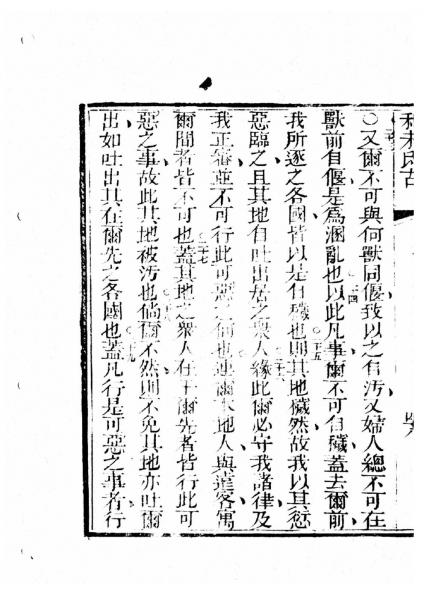 ○又爾不可與何獸同偃致以之自汚又婦人總不可在
獸前自偃是爲溷亂也以此凡事爾不可自穢蓋去爾前
我所逐之各國皆以是自穢也則其地穢然故我以其愆
惡臨之且其地自吐出居之衆人緣此爾必守我諸律及
我正審並不可行此可惡之何也連爾本地人與遠客寓
爾間者皆不可也蓋其地之衆人在于爾先者皆行此可
惡之事故此其地被汚也倘爾不然則不免其地亦吐爾
出如吐出其在爾先之各國也蓋凡行是可惡之事者行